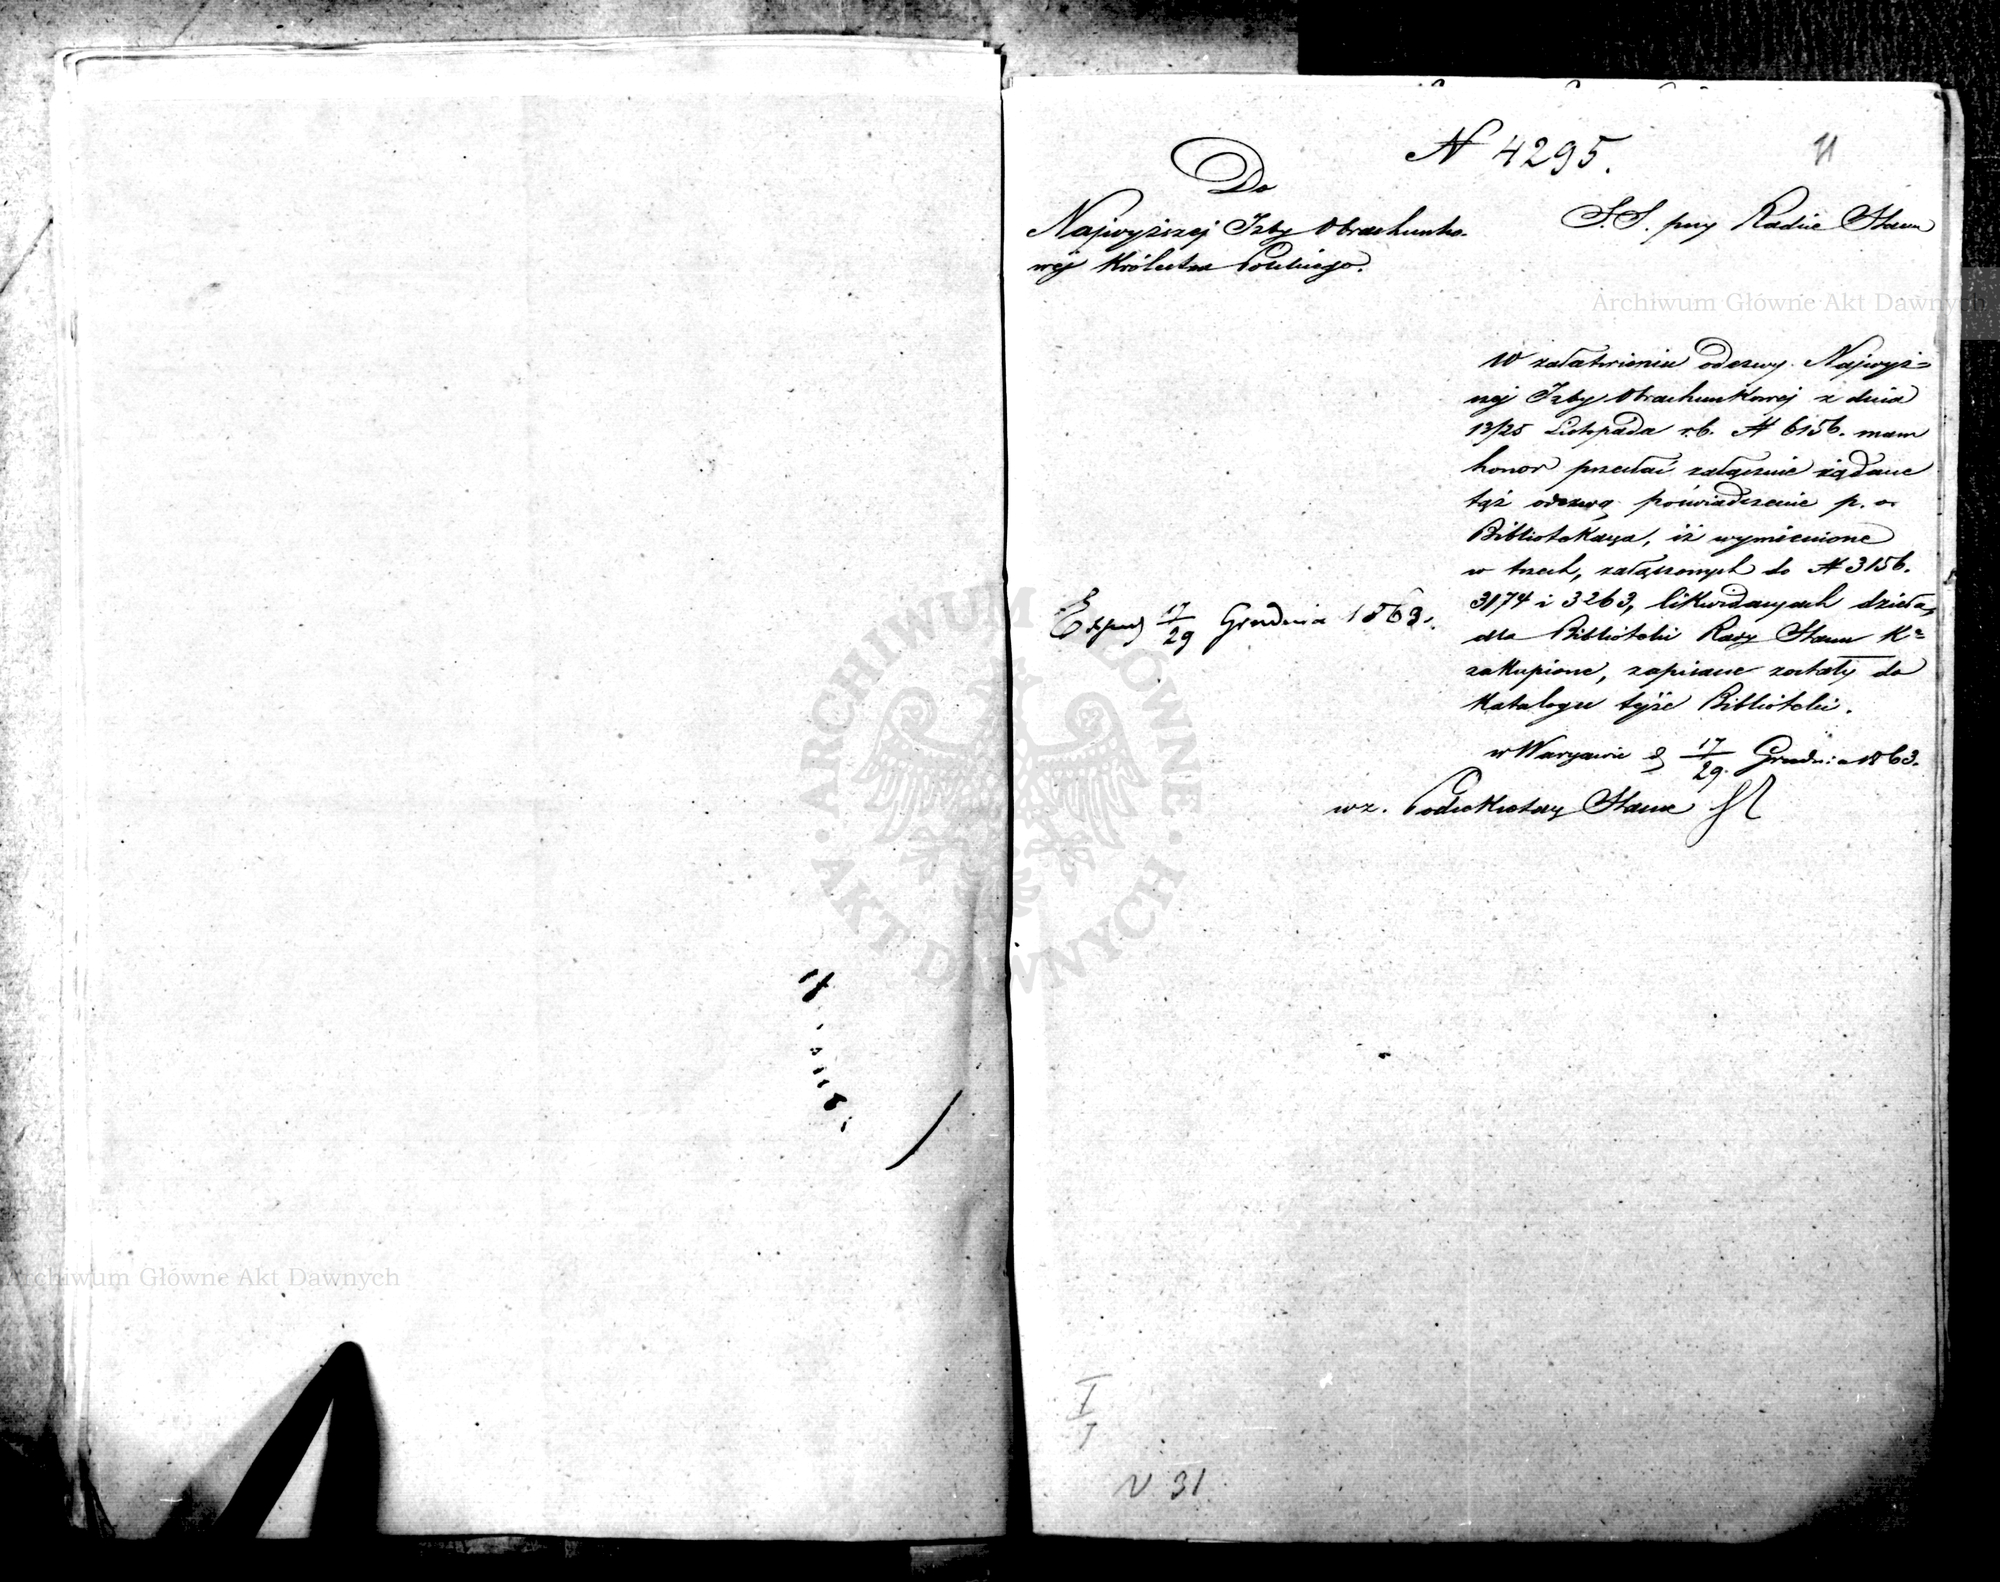 N 4295.
11
Do
Najwyższej Izby Obrachunko-
wej Królestwa Polskiego.
S.S. przy Radzie Stanu
W załatwieniu odezwy Najwyż=
szej Izby Obrachunkowej z dnia
13/25 Listopada r.b. N 6156. mam
honor przesłać załącznie żądane
tąż odezwą poświadczenie p. o
Bibliotekarza, iż wymienione
w trzech, załączonych do N 3156.
3174 i 3263, likwidacyach dzieła,
dla Biblioteki Rady Stanu K=
zakupione, zapisane zostały do
Katalogu tejże Biblioteki.
w Warszawie d 17/29. Grudnia 1863.
wz. Podsekretarz Stanu
Exped 17/29 Grudnia 1863.
I
N 31.
Archiwum Główne Akt Dawnych
Archiwum Główne Akt Dawnych
ARCHIWUM GŁÓWNE
AKT DAWNYCH